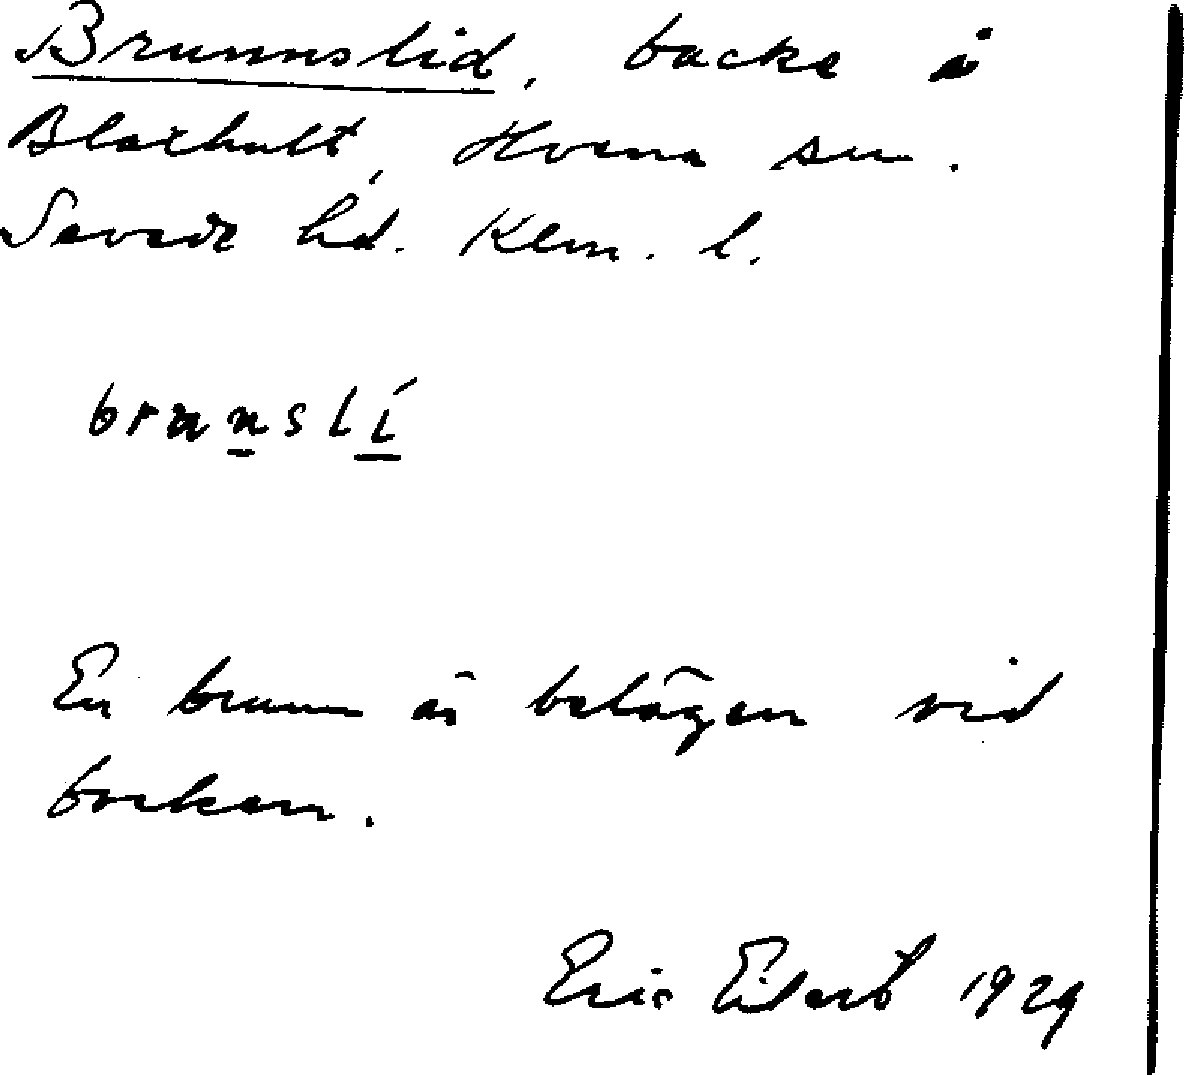 Brunnslid, backe å
Blaxhult, Hvena sn.
Sevede hd. Klm. l.
brunslí
En brunn är belägen vid
backen.
Eric 1929